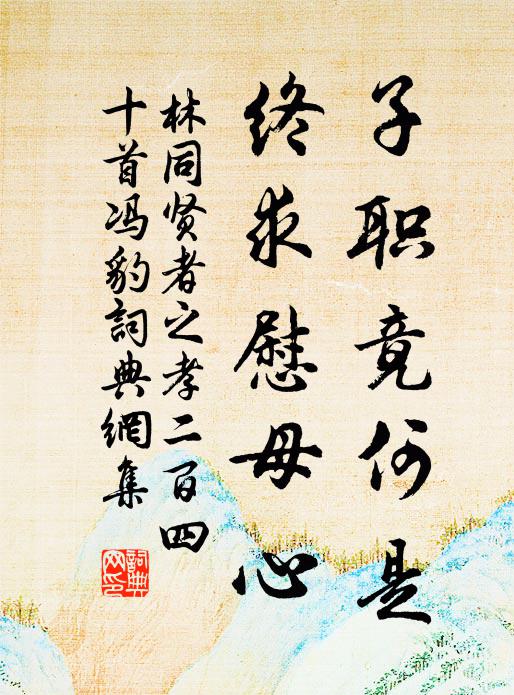 子职竟何是
终求慰母心
林同贤者之孝二百四
十首冯豹词典網集
詞典
网印